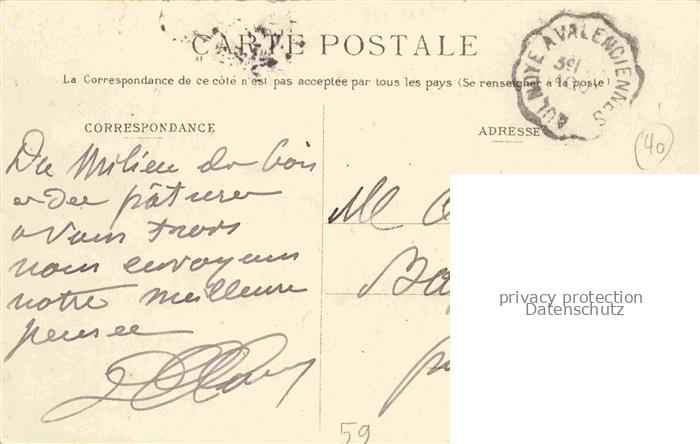 CARTE POSTALE
La Correspondance de ce côté n'est pas acceptée par tous les pays (Se renseigner à la poste)
AULNOYE A VALENCIENNES
CORRESPONDANCE
ADRESSE
40
Du Milieu des bois
et des pâtures
a vous trois
nous envoyons
notre meilleure
pensée
M
privacy protection
Datenschutz
59